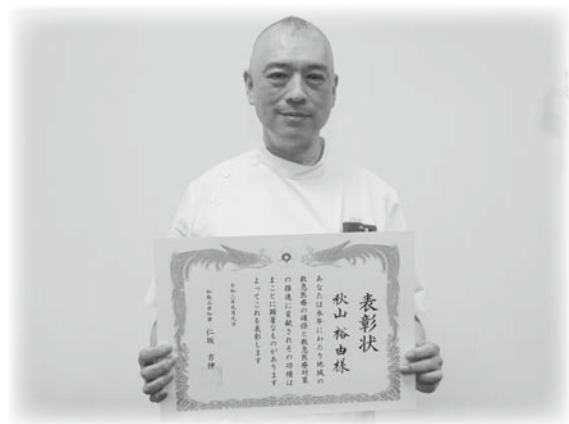 表彰状
秋山 裕由様
あなたは永年にわたり地域の
救急医療の確保と救急医療対策
の推進に貢献されその功績は
まことに顕著なものがあります
よってこれを表彰します
令和三年九月九日
和歌山県知事 仁坂 吉伸